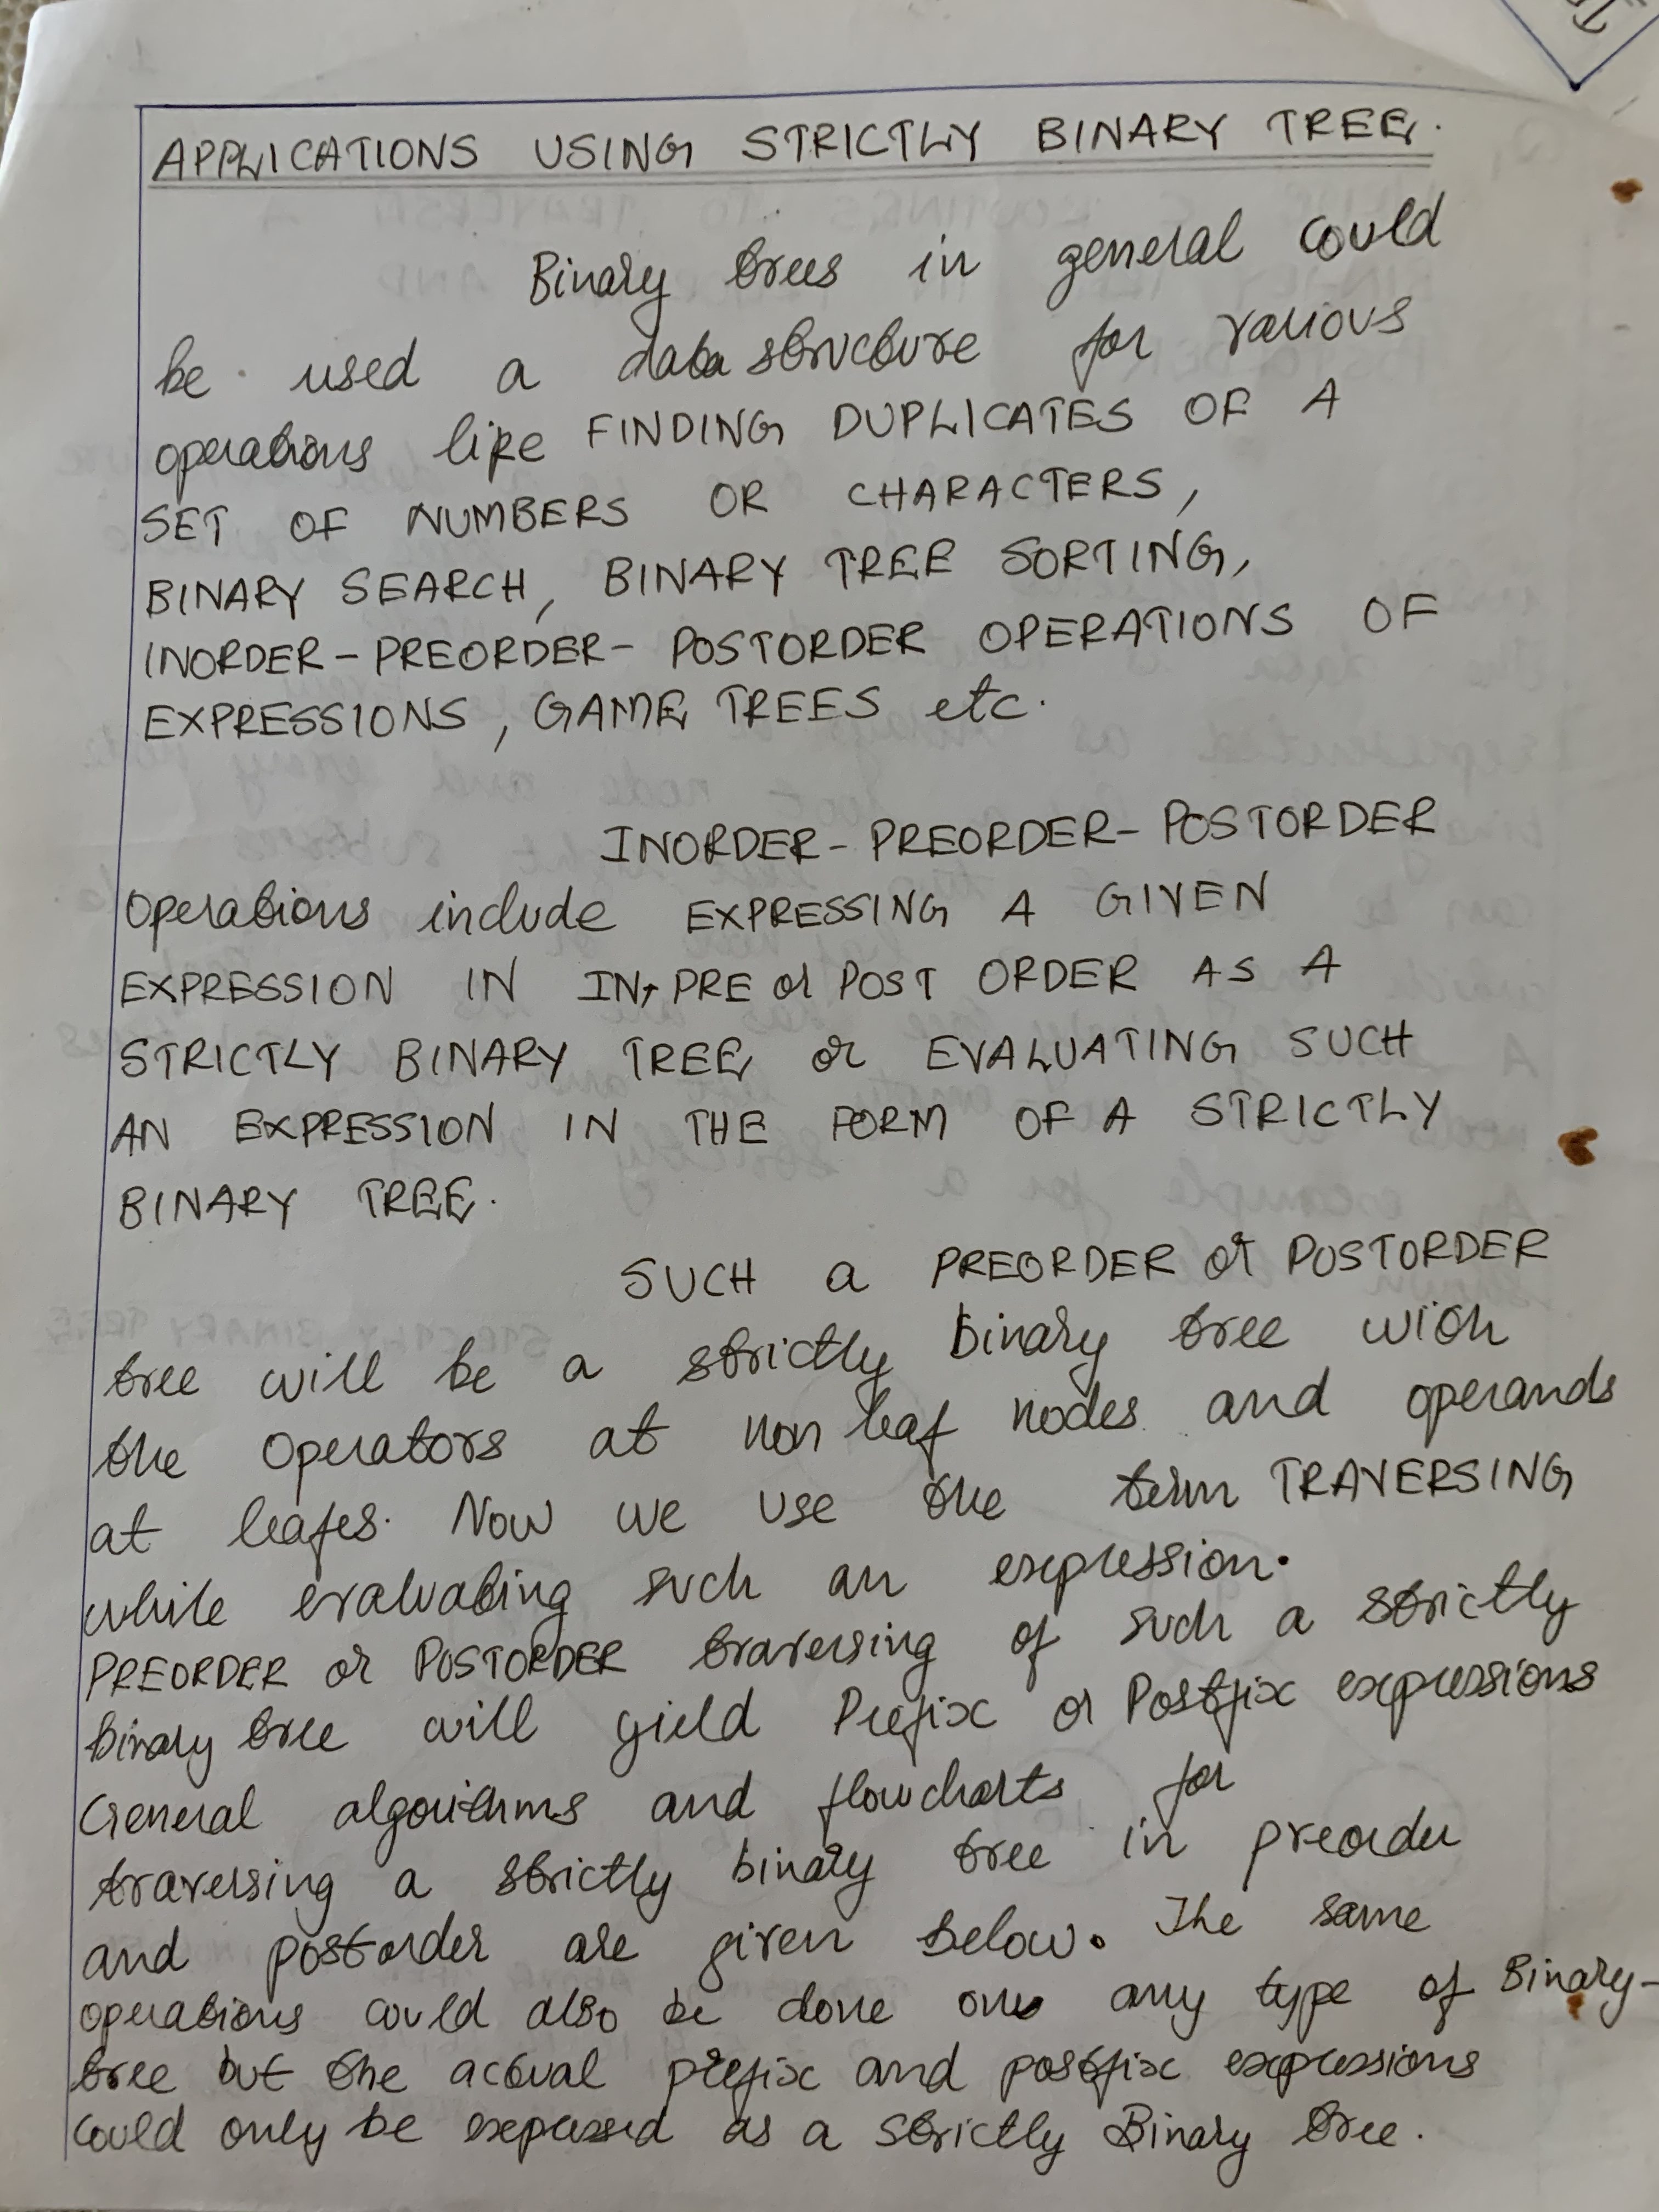 APPLICATIONS USING STRICTLY BINARY TREE.
Binary trees in general could
be used a data structure for various
operations like FINDING DUPLICATES OF A
SET OF NUMBERS OR CHARACTERS,
BINARY SEARCH, BINARY TREE SORTING,
INORDER-PREORDER-POSTORDER OPERATIONS OF
EXPRESSIONS, GAME TREES etc.
INORDER-PREORDER-POSTORDER
Operations include EXPRESSING A GIVEN
EXPRESSION IN IN, PRE or POST ORDER AS A
STRICTLY BINARY TREE or EVALUATING SUCH
AN EXPRESSION IN THE FORM OF A STRICTLY
BINARY TREE.
SUCH a PREORDER or POSTORDER
tree will be a strictly binary tree with
the Operators at non leaf nodes and operands
at leafes. Now we use the term TRAVERSING
while evaluating such an expression.
PREORDER or POSTORDER traversing of such a strictly
binary tree will yield Prefix or Postfix expressions
General algorithms and flowcharts for
traversing a strictly binary tree in preorder
and postorder are given below. The same
operations could also be done one any type of Binary-
tree but the actual prefix and postfix expressions
could only be expressed as a Strictly Binary tree.